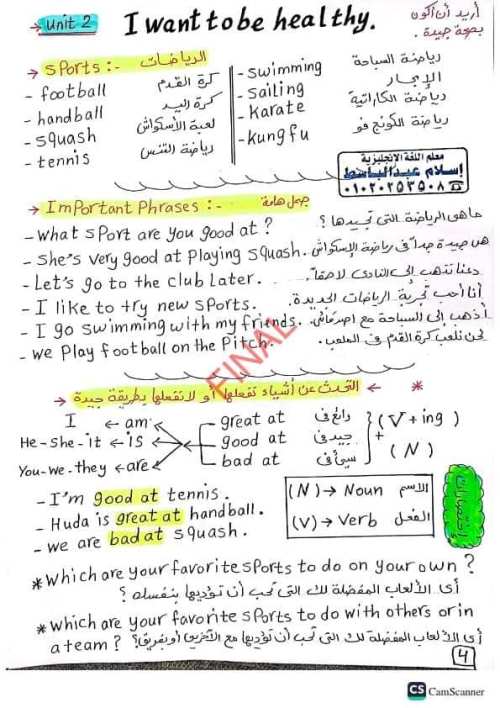 Unit 2 I want to be healthy. أريد أن أكون بصحة جيدة.
→ Sports :- الرياضات
- football كرة القدم
- handball كرة اليد
- squash لعبة الأسكواش
- tennis رياضة التنس
- swimming رياضة السباحة
- sailing الإبحار
- karate رياضة الكاراتية
- kung fu رياضة الكونج فو
معلم اللغة الإنجليزية
إسلام عبدالباسط
٠١٠٢٠٢٥٣٥٠٨
→ Important Phrases :- جمل هامة
- What sport are you good at ? ما هى الرياضة التى تجيدها ؟
- She's very good at playing squash. هى جيدة جداً فى رياضة الإسكواش
- Let's go to the club later. دعنا نذهب إلى النادى لاحقاً.
- I like to try new sports. أنا أحب تجربة الرياضات الجديدة.
- I go swimming with my friends. أذهب إلى السباحة مع اصدقائى.
- We play football on the Pitch. نحن نلعب كرة القدم فى الملعب.
FINAL
→ التحدث عن أشياء تفعلها أو لا تفعلها بطريقة جيدة ← *
I ← am great at رائع فى
He-she-it ← is good at جيد فى
You-we-they ← are bad at سيئ فى
+ (V + ing)
(N)
- I'm good at tennis.
- Huda is great at handball.
- We are bad at squash.
(N) → Noun الاسم
(V) → Verb الفعل
* Which are your favorite sports to do on your own ?
أى الألعاب المفضلة لك التى تحب أن تؤديها بنفسك ؟
* Which are your favorite sports to do with others or in
a team ? أى الألعاب المفضلة لك التى تحب أن تؤديها مع الآخرين أو بفريق؟
4
CS CamScanner